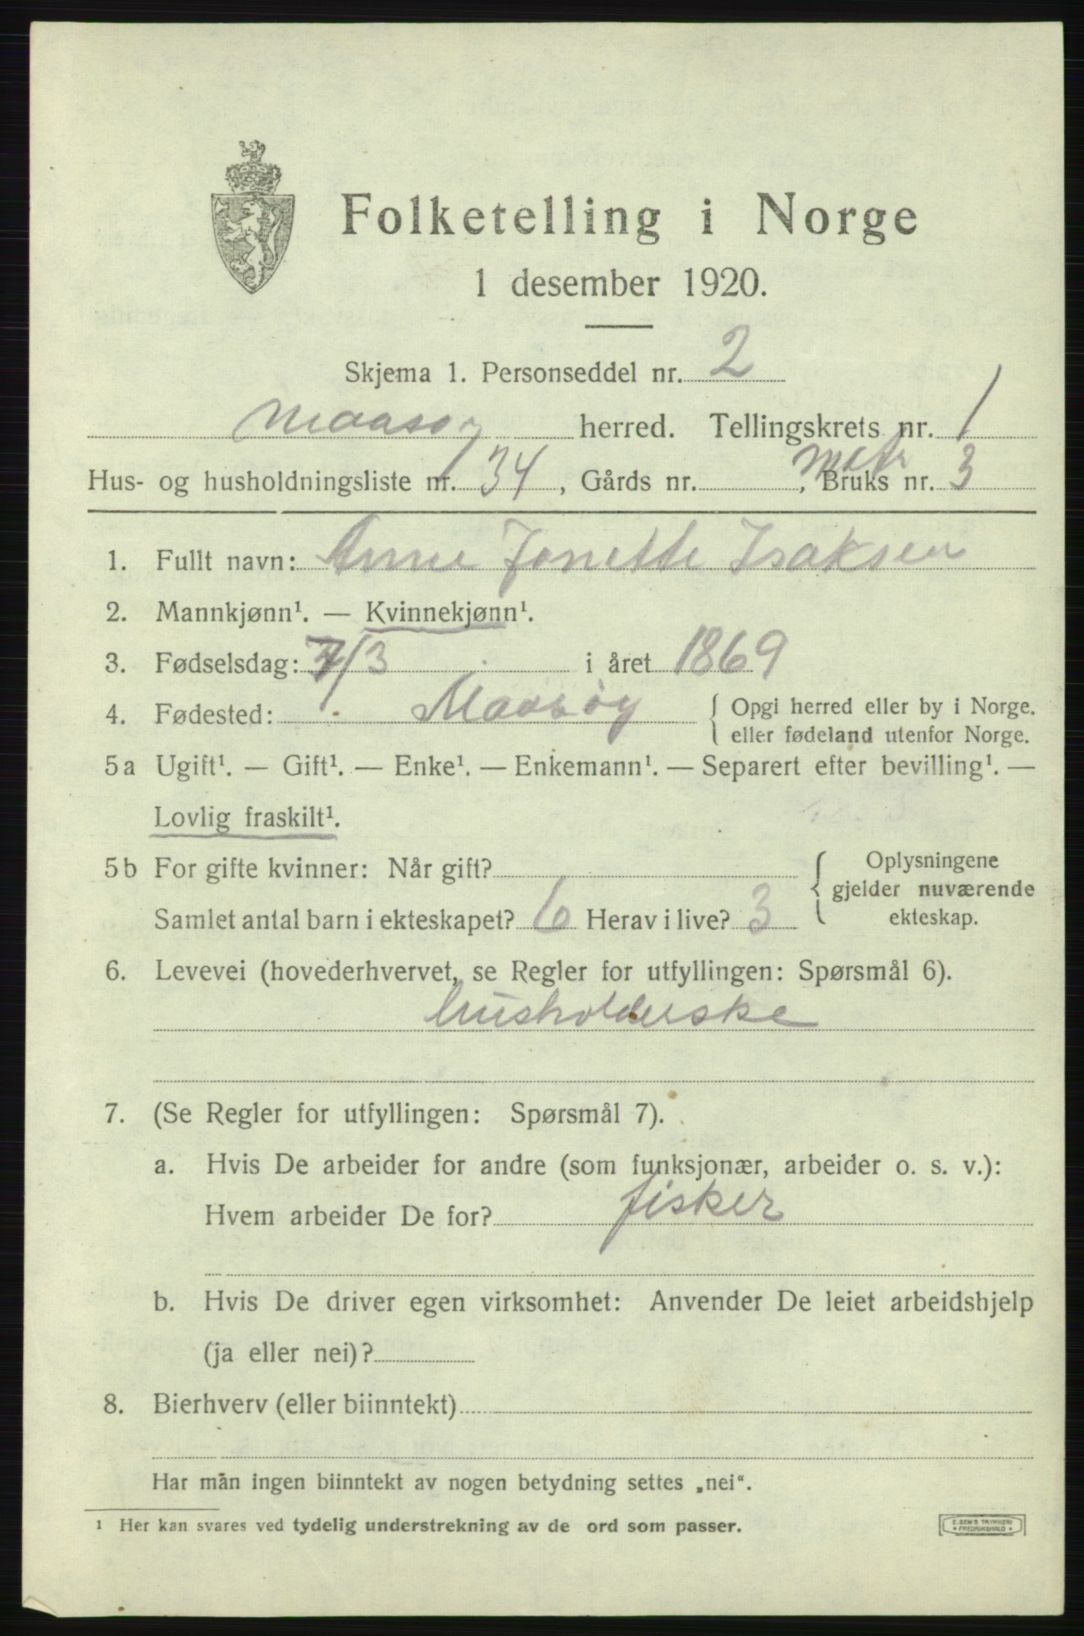 Folketelling i Norge
1 desember 1920.
Skjema 1. Personseddel nr. 2
Maasøy herred. Tellingskrets nr. 1
Hus- og husholdningsliste nr. 134, Gårds nr. , Matr Bruks nr. 3
1. Fullt navn: Anne Jonette Isaksen
2. Mannkjønn¹. — Kvinnekjønn¹.
3. Fødselsdag: 7/3 i året 1869
4. Fødested: Maasøy { Opgi herred eller by i Norge.
eller fødeland utenfor Norge.
5a Ugift¹. — Gift¹. — Enke¹. — Enkemann¹. — Separert efter bevilling¹. —
Lovlig fraskilt¹.
5b For gifte kvinner: Når gift? { Oplysningene
gjelder nuværende
Samlet antal barn i ekteskapet? 6 Herav i live? 3 ekteskap.
6. Levevei (hovederhvervet, se Regler for utfyllingen: Spørsmål 6).
husholderske
7. (Se Regler for utfyllingen: Spørsmål 7).
a. Hvis De arbeider for andre (som funksjonær, arbeider o. s. v.):
Hvem arbeider De for? fisker
b. Hvis De driver egen virksomhet: Anvender De leiet arbeidshjelp
(ja eller nei)?
8. Bierhverv (eller biinntekt)
Har man ingen biinntekt av nogen betydning settes „nei“.
¹ Her kan svares ved tydelig understrekning av de ord som passer.
E. SEM'S TRYKKERI
FREDRIKSHALD